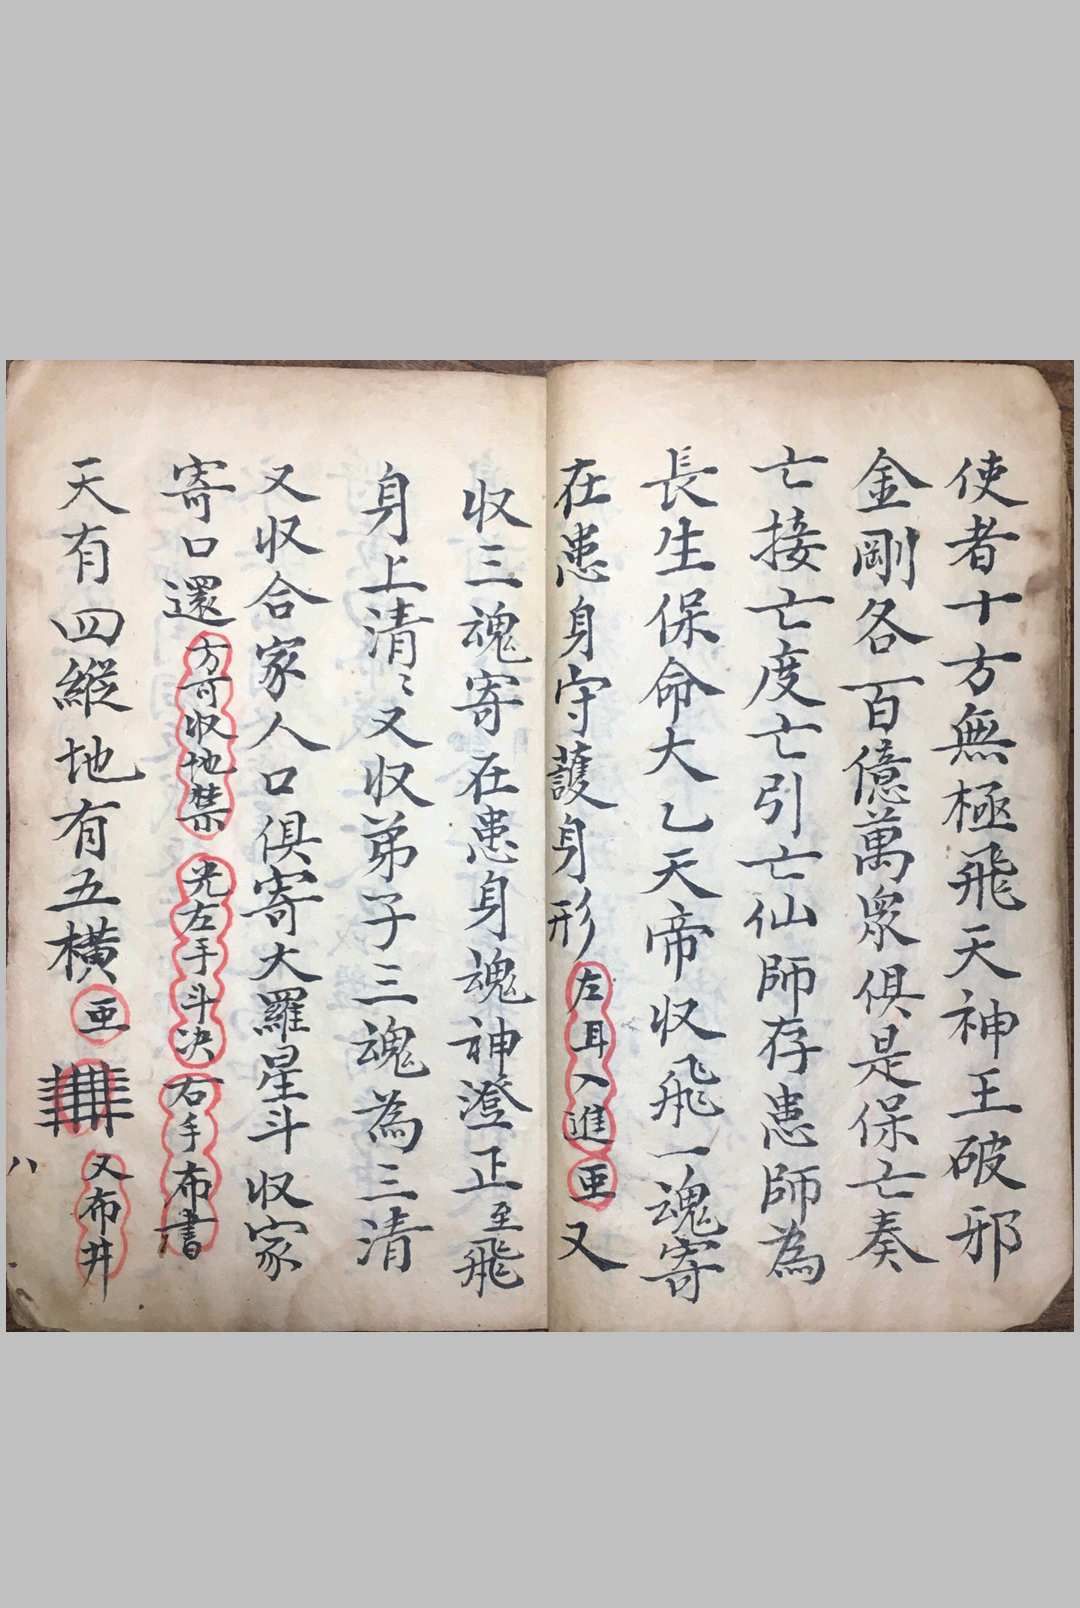 使者十方無極飛天神王破邪
金剛各百億萬眾俱是保亡奏
亡接亡度亡引亡仙師存患師為
長生保命大乙天帝収飛一魂寄
在患身守護身形左耳入進亜又
収三魂寄在患身魂神澄正至飛
身上清〻又収弟子三魂為三清
又収合家人口俱寄大羅星斗収家
寄口還方可収地禁光左手斗决右手布書
天有四縱地有五橫亜又布井
八